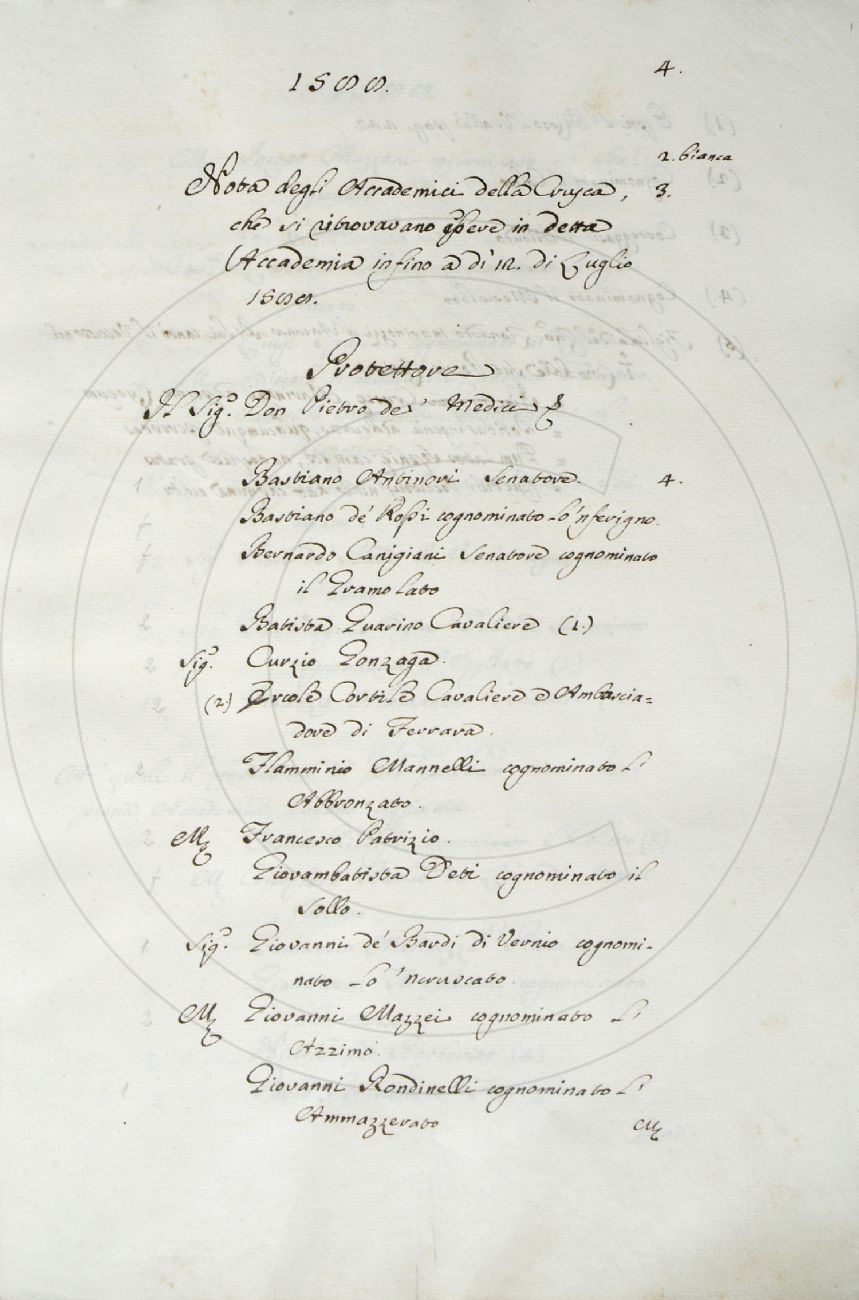 1588.
4.
2. bianca
Nota degli Accademici della Crusca,
3.
che si ritrovavano essere in detta
Accademia infino a dì 12. di Luglio
1588.
Protettore
Il Sig.º Don Pietro de' Medici
Bastiano Antinori Senatore.
4.
Bastiano de' Rossi cognominato lo 'nferigno.
Bernardo Canigiani Senatore cognominato
il Gramolato
Batista Guarino Cavaliere (1.)
Sig.º Curzio Gonzaga.
(2.) Ercole Cortile Cavaliere e Ambascia=
dore di Ferrara.
Flamminio Mannelli cognominato l'
Abbronzato.
M. Francesco Patrizio.
Giovambatista Deti cognominato il
Sollo.
Sig.º Giovanni de' Bardi di Vernio cognomi-
nato lo 'ncruscato.
M. Giovanni Mazzei cognominato l'
Azzimo.
Giovanni Rondinelli cognominato l'
Ammazzerato
M.